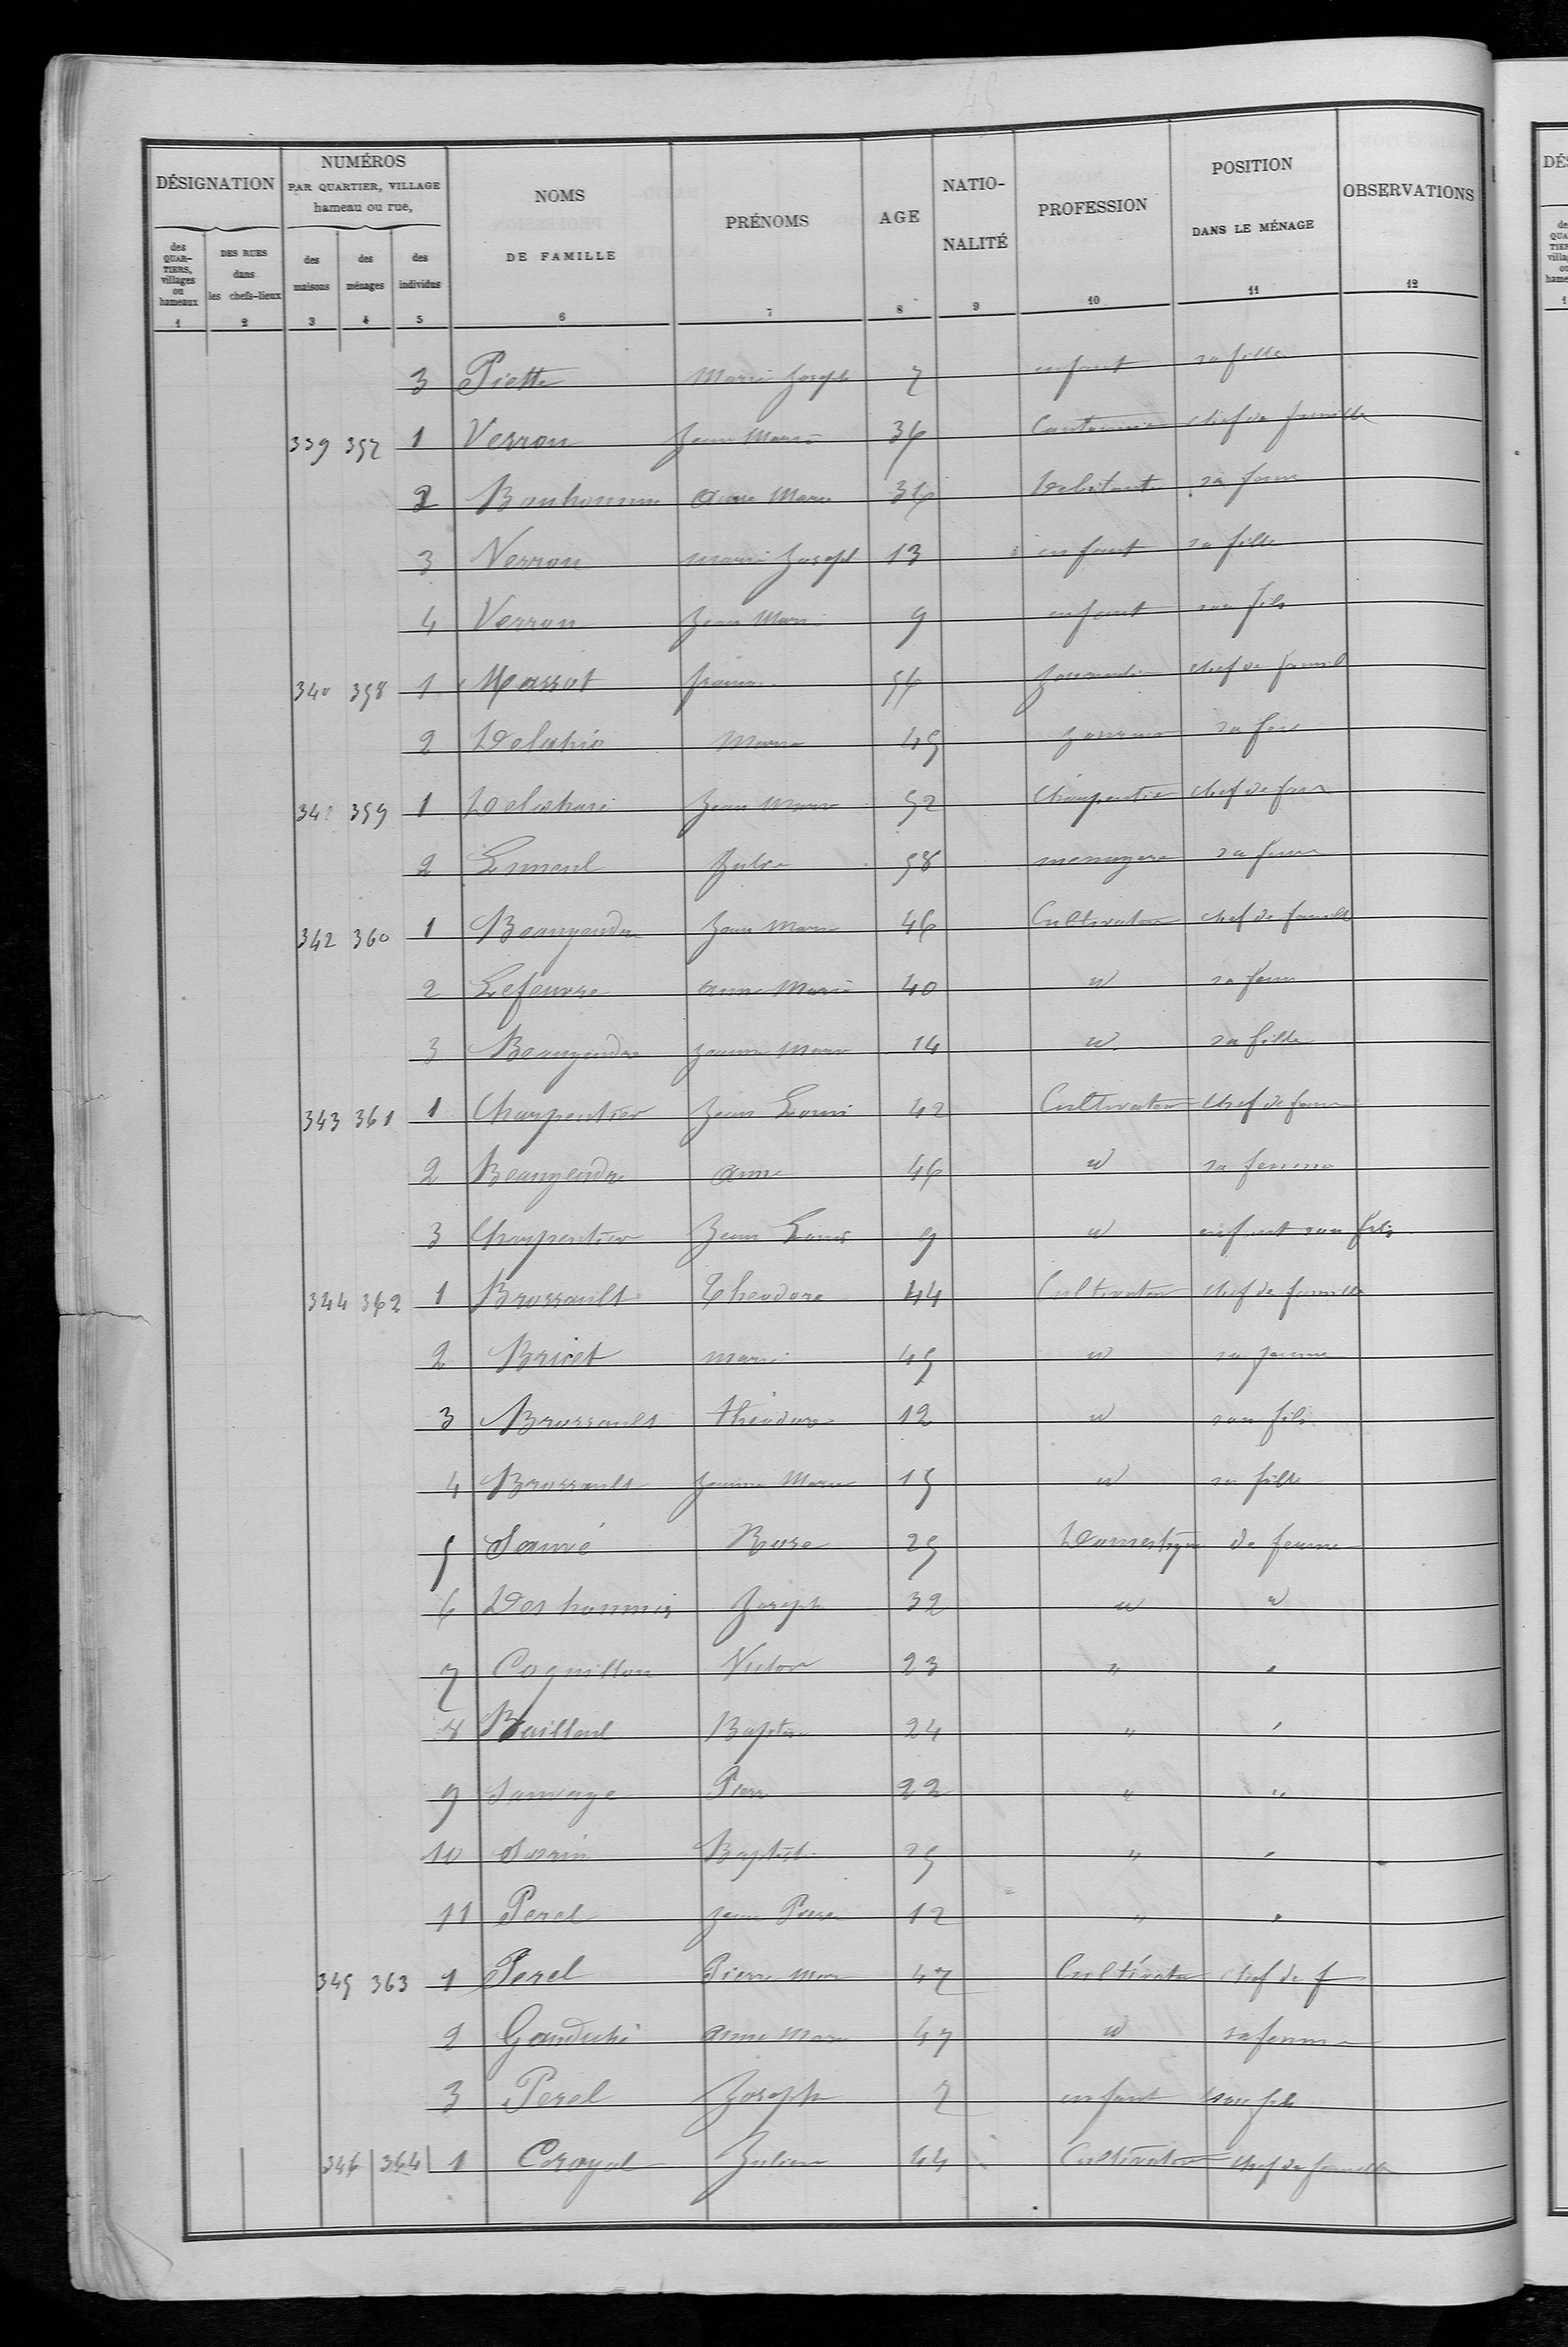 DÉSIGNATION NUMÉROS PAR QUARTIER, VILLAGE hameau ou rue, NOMS DE FAMILLE PRÉNOMS AGE NATIO-NALITÉ PROFESSION POSITION DANS LE MÉNAGE OBSERVATIONS
des QUAR-TIERS, villages ou hameaux DES RUES dans les chefs-lieux des maisons des ménages des individus
1 2 3 4 5 6 7 8 9 10 11 12
3 Piette Marie Joseph 7 enfant sa fille
339 357 1 Verron Jean Marie 36 Cantonnier chef de famille
2 Bonhomme Anne Marie 36 Debitante sa fem
3 Verron marie Joseph 13 enfant sa fille
4 Verron Jean Marie 9 enfant son fils
340 358 1 Massot 56 chef de famil
2 Marie 45 sa fem
341 359 1 Jean Marie 52 Charpentier chef de fam
2 Julie 58 menagere sa femme
342 360 1 Beaugendre Jean Marie 46 Cultivateur chef de famille
2 Lefeuvre Anne Marie 40 " sa fem
3 Beaugendre Jeanne Marie 14 " sa fille
343 361 1 Charpentier Jean Louis 42 Cultivateur Chef de fam
2 Beaugendre Anne 46 " sa femme
3 Charpentier Jean Louis 9 " enfant son fils
344 362 1 Brossault Theodore 44 Cultivateur chef de famille
2 Bricet marie 45 " sa femme
3 Brossault théodore 12 " son fils
4 Brossault Jeanne Marie 15 " sa fille
5 Samé Rose 25 Domestique de ferme
6 Deshommes Joseph 32 " "
7 Coquillon Victor 23 " "
8 Bailleul Baptiste 24 " "
9 Sauvage Pierr 22 " "
10 Sorin Baptist 25 " "
11 Perel Jean Pierre 12 " "
345 363 1 Perel Pierre Mar 47 Cultivateur chef de f
2 Ganduché Anne Marie 47 " sa femme
3 Perel Joseph 7 enfant son fils
346 364 1 Croyal Julien 44 Cultivateur chef de famille